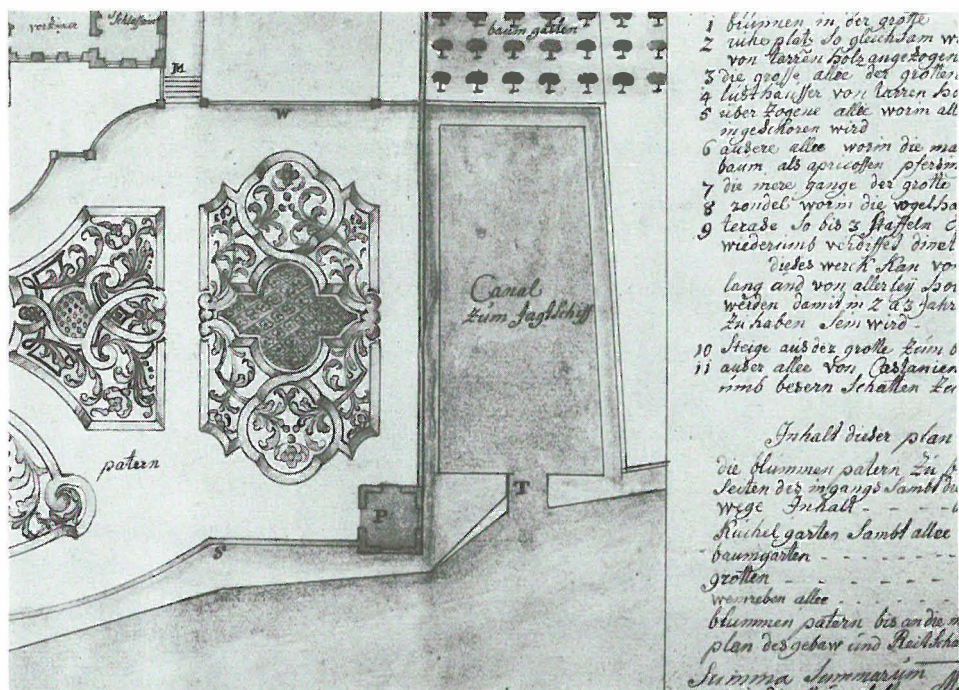 vorkimer
Schlossant
baum garten
M
W
Canal
Zum Jagtschiff
patern
P
T
S
1 brünnen in der grotte
2 ruhe platz so gleichsam w
von tarren holz angezogen
3 die grosse allee der grotten
4 lusthausser von tarren ho
5 über zogene allee worin all
ingeschoren wird
6 ausere allee worin die ma
baum als apricossen pfersin
7 die mere gange der grotte
8 rondel worin die vogelha
9 terase so bis 3 staffeln
wiederumb
dieses werck kan von
lang and von allerley ho
werden damit in 2 a 3 Jahr
zu haben sein wird
10 steige aus der grotte zum
11 auser allee von Castanien
umb besern schatten zu
Inhalt dieser plan
die blummen patern zu b
seiten des ingangs sambt di
wege Inhalt
Kuchel garten sambt allee
baumgarten
grotten
weinreben allee
blummen patern bis an die m
plan des gebaw und Reitscha
Summa Summarum